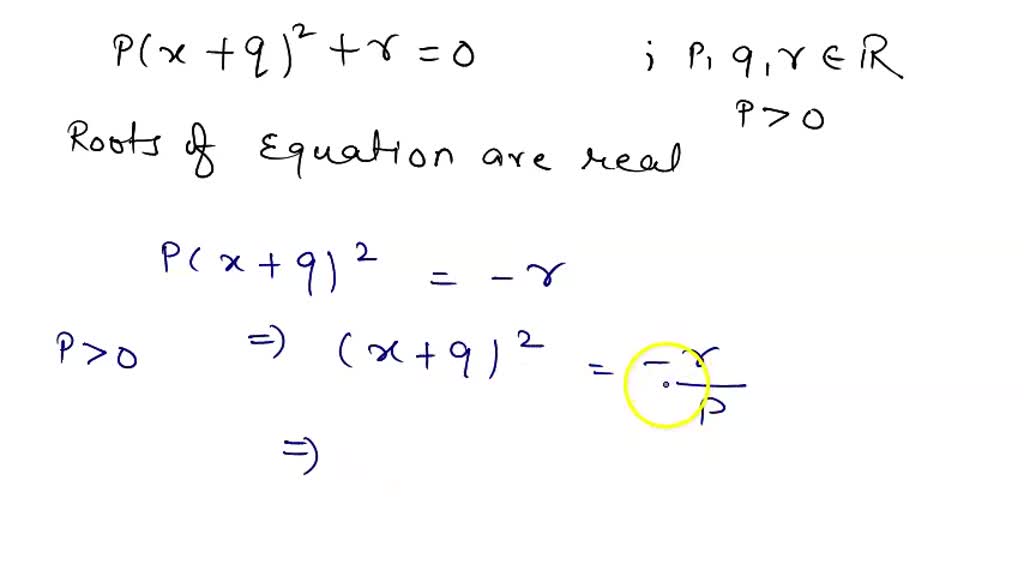 P(x+q)² + r = 0 ; P, q, r ∈ ℝ
P > 0
Roots of Equation are real
P(x+q)² = -r
P > 0 ⇒ (x+q)² = -r/P
⇒